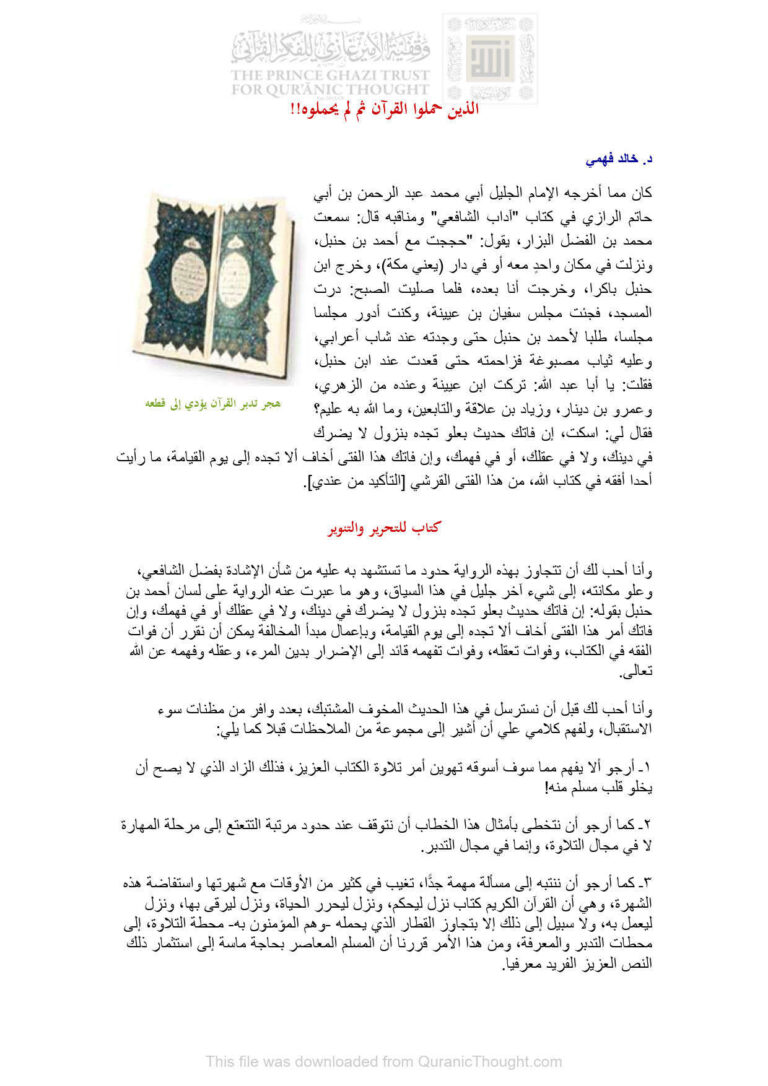 وقفية الأمير غازي للفكر القرآني
THE PRINCE GHAZI TRUST
FOR QUR'ĀNIC THOUGHT
الذين حملوا القرآن ثم لم يحملوه!!
د. خالد فهمي
كان مما أخرجه الإمام الجليل أبي محمد عبد الرحمن بن أبي
حاتم الرازي في كتاب "آداب الشافعي" ومناقبه قال: سمعت
محمد بن الفضل البزار، يقول: "حججت مع أحمد بن حنبل،
ونزلت في مكان واحدٍ معه أو في دار (يعني مكة)، وخرج ابن
حنبل باكرا، وخرجت أنا بعده، فلما صليت الصبح: درت
المسجد، فجئت مجلس سفيان بن عيينة، وكنت أدور مجلسا
مجلسا، طلبا لأحمد بن حنبل حتى وجدته عند شاب أعرابي،
وعليه ثياب مصبوغة فزاحمته حتى قعدت عند ابن حنبل،
فقلت: يا أبا عبد الله: تركت ابن عيينة وعنده من الزهري،
وعمرو بن دينار، وزياد بن علاقة والتابعين، وما الله به عليم؟
فقال لي: اسكت، إن فاتك حديث بعلو تجده بنزول لا يضرك
هجر تدبر القرآن يؤدي إلى قطعه
في دينك، ولا في عقلك، أو في فهمك، وإن فاتك هذا الفتى أخاف ألا تجده إلى يوم القيامة، ما رأيت
أحدا أفقه في كتاب الله، من هذا الفتى القرشي [التأكيد من عندي].
كتاب للتحرير والتنوير
وأنا أحب لك أن تتجاوز بهذه الرواية حدود ما تستشهد به عليه من شأن الإشادة بفضل الشافعي،
وعلو مكانته، إلى شيء آخر جليل في هذا السياق، وهو ما عبرت عنه الرواية على لسان أحمد بن
حنبل بقوله: إن فاتك حديث بعلو تجده بنزول لا يضرك في دينك، ولا في عقلك أو في فهمك، وإن
فاتك أمر هذا الفتى أخاف ألا تجده إلى يوم القيامة، وبإعمال مبدأ المخالفة يمكن أن نقرر أن فوات
الفقه في الكتاب، وفوات تعقله، وفوات تفهمه قائد إلى الإضرار بدين المرء، وعقله وفهمه عن الله
تعالى.
وأنا أحب لك قبل أن نسترسل في هذا الحديث المخوف المشتبك، بعدد وافر من مظنات سوء
الاستقبال، ولفهم كلامي علي أن أشير إلى مجموعة من الملاحظات قبلا كما يلي:
١ـ أرجو ألا يفهم مما سوف أسوقه تهوين أمر تلاوة الكتاب العزيز، فذلك الزاد الذي لا يصح أن
يخلو قلب مسلم منه!
٢ـ كما أرجو أن نتخطى بأمثال هذا الخطاب أن نتوقف عند حدود مرتبة التتعتع إلى مرحلة المهارة
لا في مجال التلاوة، وإنما في مجال التدبر.
٣ـ كما أرجو أن ننتبه إلى مسألة مهمة جدًّا، تغيب في كثير من الأوقات مع شهرتها واستفاضة هذه
الشهرة، وهي أن القرآن الكريم كتاب نزل ليحكم، ونزل ليحرر الحياة، ونزل ليرقى بها، ونزل
ليعمل به، ولا سبيل إلى ذلك إلا بتجاوز القطار الذي يحمله -وهم المؤمنون به- محطة التلاوة، إلى
محطات التدبر والمعرفة، ومن هذا الأمر قررنا أن المسلم المعاصر بحاجة ماسة إلى استثمار ذلك
النص العزيز الفريد معرفيا.
This file was downloaded from QuranicThought.com